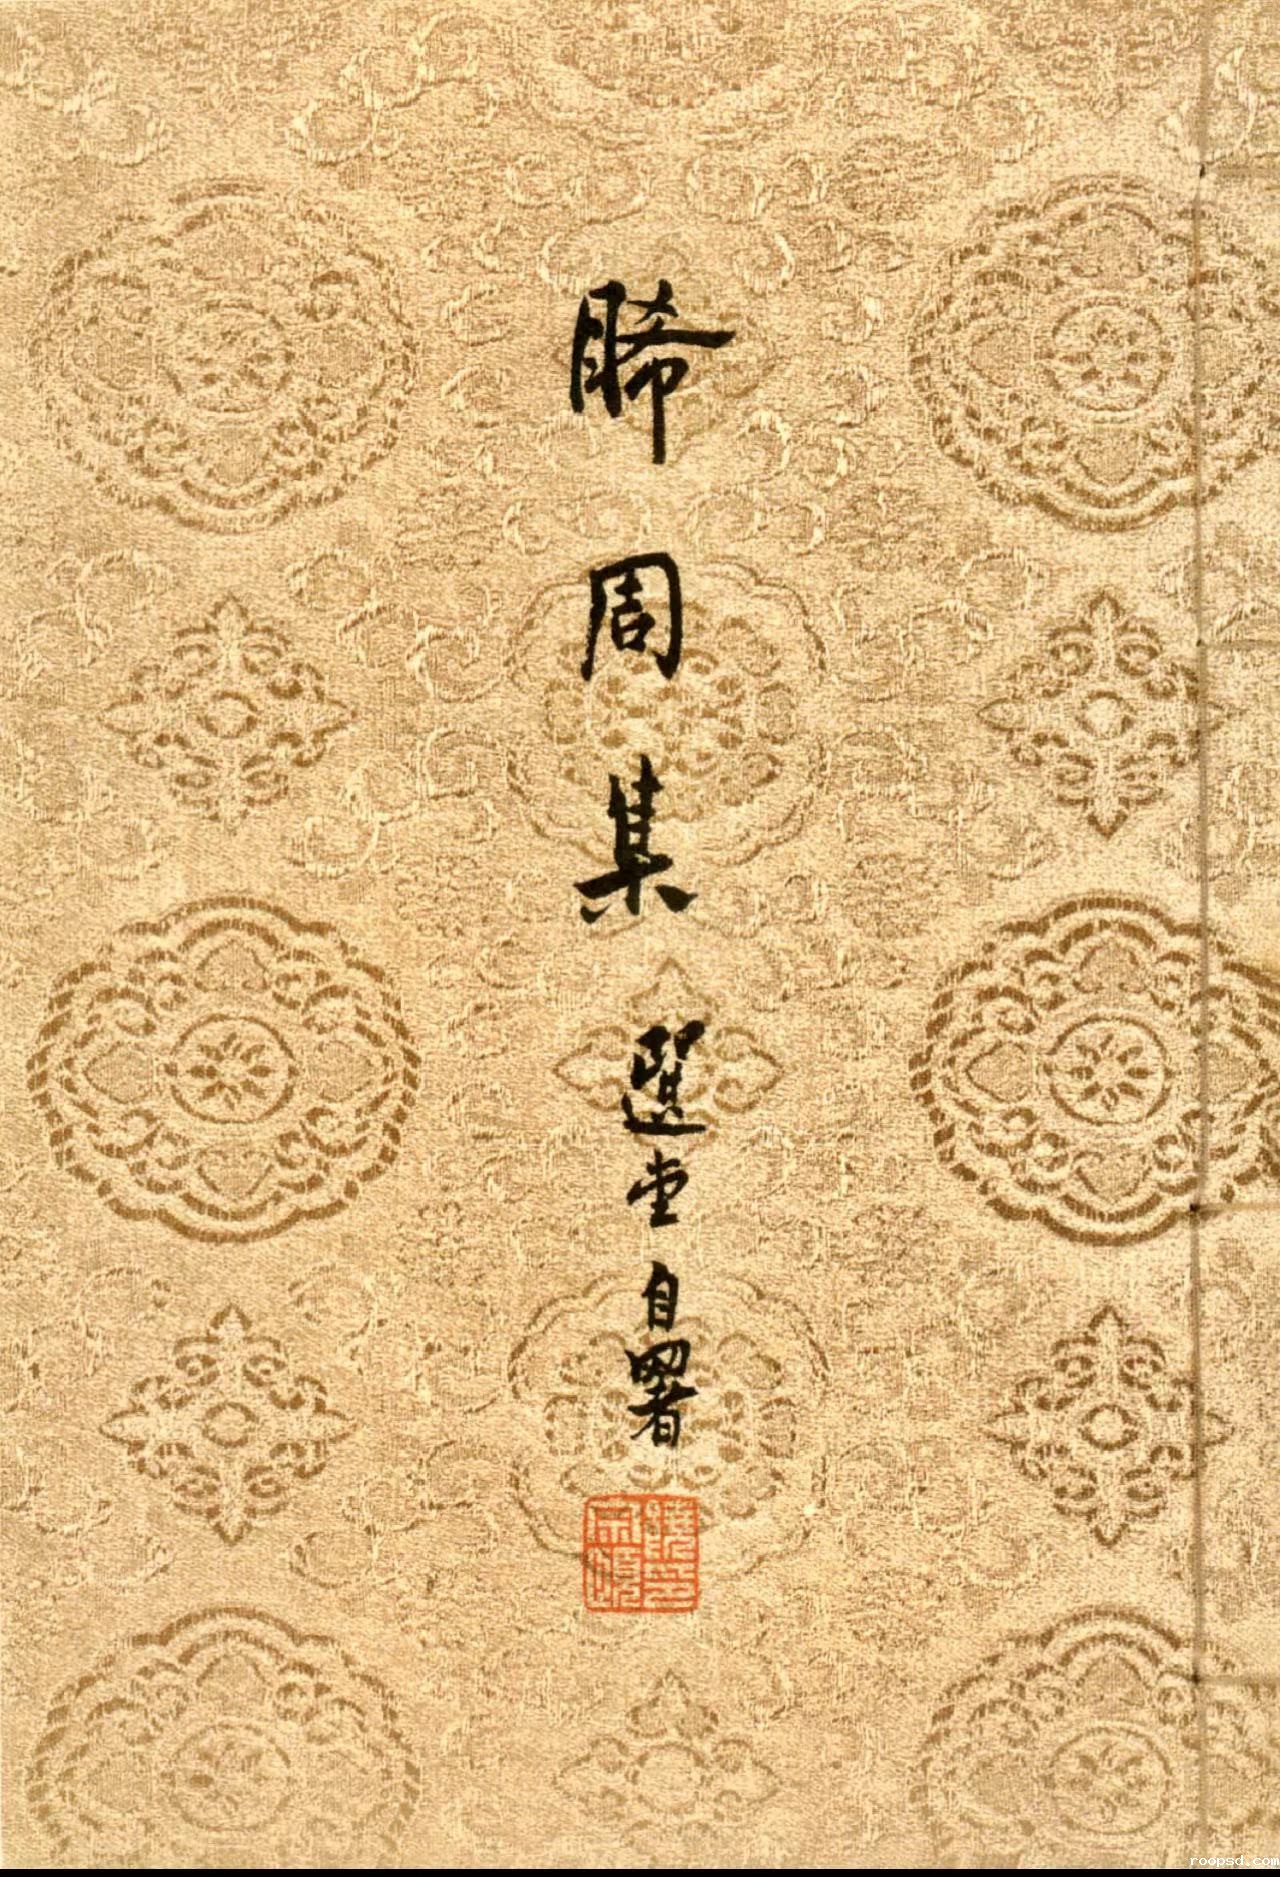 睎周集
選堂自署
饒宗頤印
roopsd.com